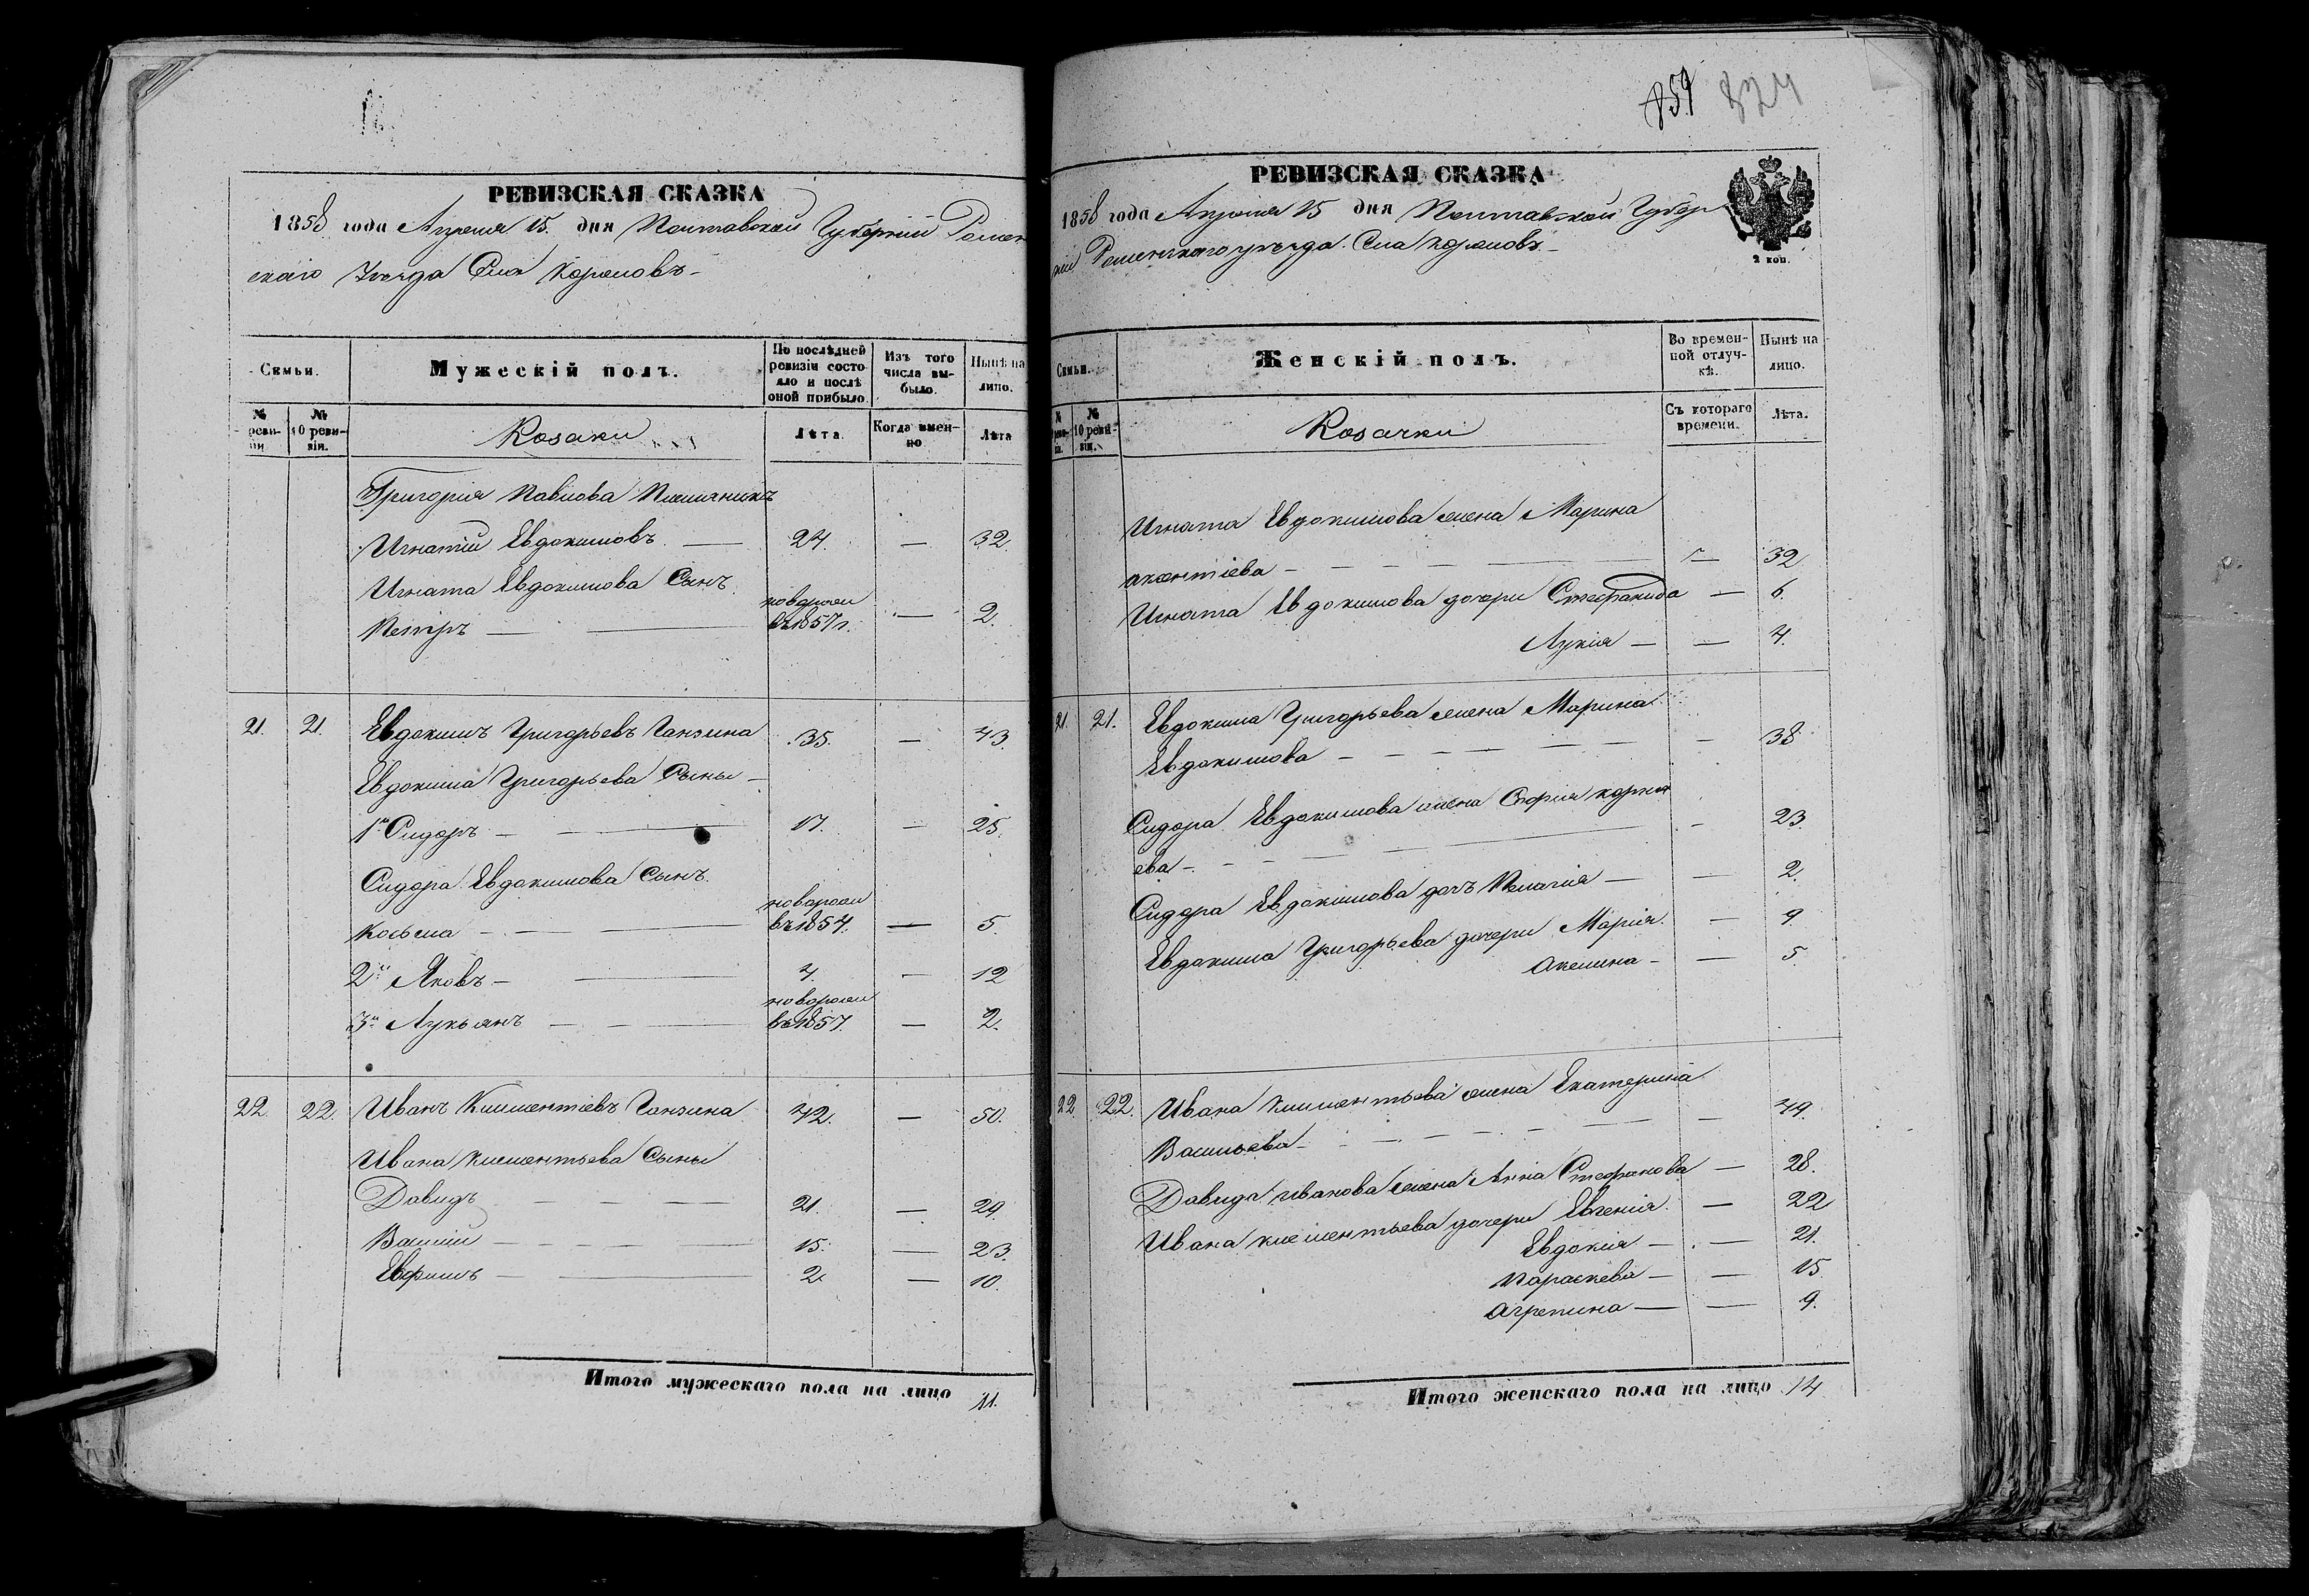 РЕВИЗСКАЯ СКАЗКА
1858 года Апреля 15. дня Полтавской Губерніи Ромен
скаго Уезда Села Корововъ
Семьи.
Мужескій полъ.
По послѣдней ревизіи состояло и послѣ оной прибыло.
Изъ того числа выбыло.
Нынѣ на лицо.
№ ревизіи
№ 10 ревизіи.
Козаки
Лѣта
Когда именно
Лѣта
Григорія Павлова Племянникъ
Игнатій Евдокимовъ — 24. — 32.
Игната Евдокимова Сынъ
Петръ — новорожен въ 1857 г. — 2.
21. 21. Евдокимъ Григорьевъ Ганзина 35. — 43.
Евдокима Григорьева Сыны —
1й Сидоръ — 17. — 25.
Сидора Евдокимова Сынъ
Косьма — новорожен въ 1854. — 5.
2й Яковъ — 4 — 12
3й Лукьянъ — новорожен въ 1857. — 2.
22 22. Иванъ Климентіевъ Ганзина 42. — 50.
Ивана Климентьева Сыны
Давидъ — 21. — 29.
Василій — 15. — 23.
Евфимъ — 2 — 10.
Итого мужескаго пола на лицо 11.
859 824
РЕВИЗСКАЯ СКАЗКА
1858 года Апреля 15 дня Полтавской Губер
ніи Роменскаго уезда. Села Корововъ
2 коп.
Семьи.
Женскій полъ.
Во временной отлучкѣ.
Нынѣ на лицо.
№ ревизіи.
№ 10 ревизіи.
Козачки
Съ котораго времени.
Лѣта.
Игната Евдокимова жена Марина
Акентіева — — 32
Игната Евдокимова дочери Стефанида — 6.
Лукія — — 4.
21. 21. Евдокима Григорьева жена Марина
Евдокимова — — 38
Сидора Евдокимова жена Софія Корни
ева — — 23.
Сидора Евдокимова дочъ Пелагія — — 2.
Евдокима Григорьева дочери Марія. — 9.
Акелина — — 5.
22 22. Ивана Климентьева жена Екатерина
Васильева — — 49.
Давида Иванова жена Анна Стефанова — 28.
Ивана Климентьева дочери Евгенія. — 22
Евдокія — — 21.
Параскева — — 15
Агрепина — — 9.
Итого женскаго пола на лицо 14